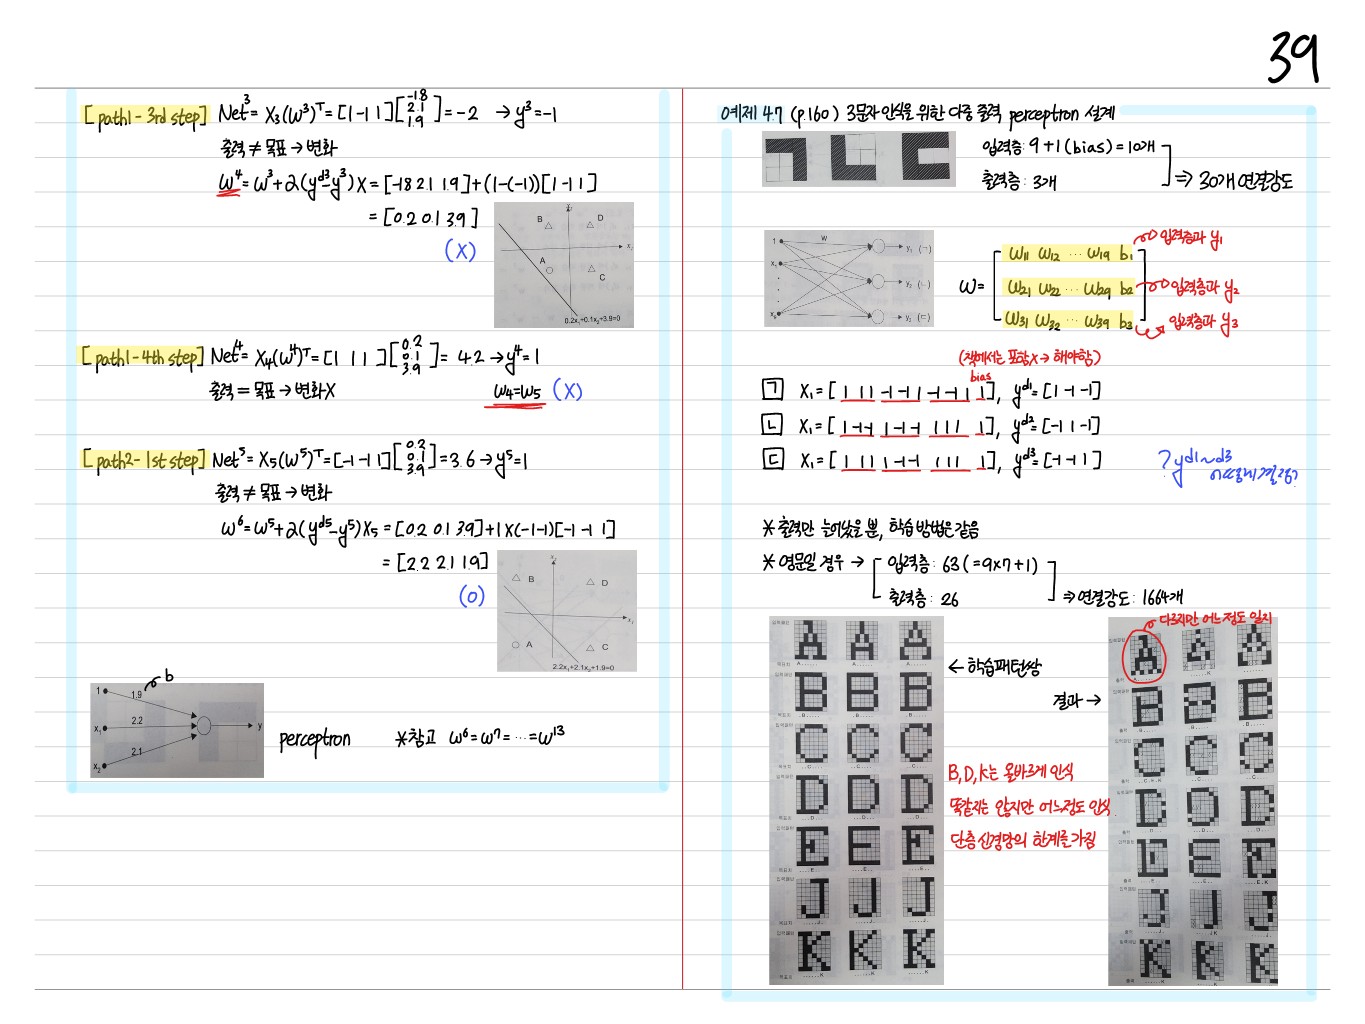 39
[path1 - 3rd step] Net³ = X₃(W³)ᵀ = [1 -1 1] [-1.8 2.1 1.9] = -2 → y³ = -1
출력 ≠ 목표 → 변화
W⁴ = W³ + α(y^d3 - y³)X = [-1.8 2.1 1.9] + (1-(-1))[1 -1 1]
= [0.2 0.1 3.9]
(X)
B D
A C
0.2x₁+0.1x₂+3.9=0
[path1 - 4th step] Net⁴ = X₄(W⁴)ᵀ = [1 1 1] [0.2 0.1 3.9] = 4.2 → y⁴ = 1
출력 = 목표 → 변화X
W4 = W5 (X)
[path2 - 1st step] Net⁵ = X₅(W⁵)ᵀ = [-1 -1 1] [0.2 0.1 3.9] = 3.6 → y⁵ = 1
출력 ≠ 목표 → 변화
W⁶ = W⁵ + α(y^d5 - y⁵)X₅ = [0.2 0.1 3.9] + 1×(-1-1)[-1 -1 1]
= [2.2 2.1 1.9]
(O)
x₂
B D
x₁
A C
2.2x₁+2.1x₂+1.9=0
b
1 1.9
x₁ 2.2 y
x₂ 2.1
perceptron *참고 W⁶ = W⁷ = … = W¹³
예제 4.7 (p.160) 3문자 인식을 위한 다중 출력 perceptron 설계
입력층 : 9 + 1 (bias) = 10개
출력층 : 3개
⇒ 30개 연결강도
1 W y₁ (ㄱ)
x₁ y₂ (ㄴ)
x₉ y₃ (ㄷ)
W = [ W11 W12 … W19 b1 입력층과 y₁
W21 W22 … W29 b2 입력층과 y₂
W31 W32 … W39 b3 ] 입력층과 y₃
(책에서는 포함X → 해야함)
bias
ㄱ X₁ = [ 1 1 1 -1 -1 1 -1 -1 1 1 ], y^d1 = [1 -1 -1]
ㄴ X₁ = [ 1 -1 -1 1 -1 -1 1 1 1 1 ], y^d2 = [-1 1 -1]
ㄷ X₁ = [ 1 1 1 1 -1 -1 1 1 1 1 ], y^d3 = [-1 -1 1]
? y^d1~d3
어떻게 결정?
* 출력만 늘어났을 뿐, 학습 방법은 같음
* 영문일 경우 → 입력층 : 63 (=9×7+1)
출력층 : 26
⇒ 연결강도 : 1664개
다르지만 어느정도 일치
← 학습패턴쌍
결과 →
B, D, K는 올바르게 인식
똑같지는 않지만 어느정도 인식
단층신경망의 한계를 가짐